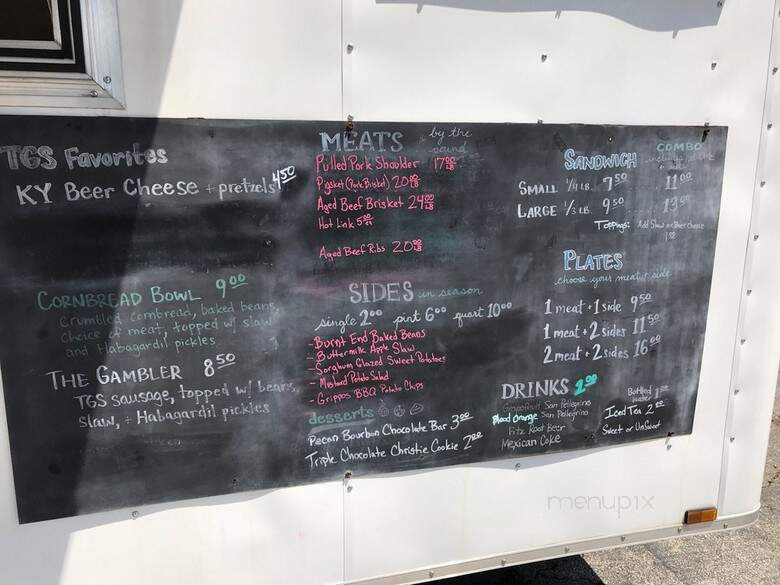 TGS Favorites
KY Beer Cheese + pretzels 4.50
CORNBREAD BOWL 9.00
Crumbled cornbread, baked beans,
choice of meat, topped w/ slaw
and Habagardil pickles
THE GAMBLER 8.50
TGS sausage, topped w/ beans,
slaw, + Habagardil pickles
MEATS by the
pound
Pulled Pork Shoulder 17.00 LB
Pigsket (Pork Brisket) 20.00 LB
Aged Beef Brisket 24.00 LB
Hot Link 5.00
Aged Beef Ribs 20.00 LB
SIDES in season
single 2.00 pint 6.00 quart 10.00
- Burnt End Baked Beans
- Buttermilk Apple Slaw
- Sorghum Glazed Sweet Potatoes
- Mustard Potato Salad
- Grippos BBQ Potato Chips
desserts
Pecan Bourbon Chocolate Bar 3.00
Triple Chocolate Christie Cookie 2.00
SANDWICH COMBO
SMALL 1/4 LB. 7.50 11.00
LARGE 1/3 LB. 9.50 13.00
Toppings: Add Slaw or Beer Cheese
1.00
PLATES
choose your meat + side
1 meat + 1 side 9.50
1 meat + 2 sides 11.50
2 meat + 2 sides 16.00
DRINKS 2.00
Grapefruit San Pellegrino
Blood Orange San Pellegrino
Fitz Root Beer
Mexican Coke
Bottled water
Iced Tea 2.00
Sweet or UnSweet
menupix